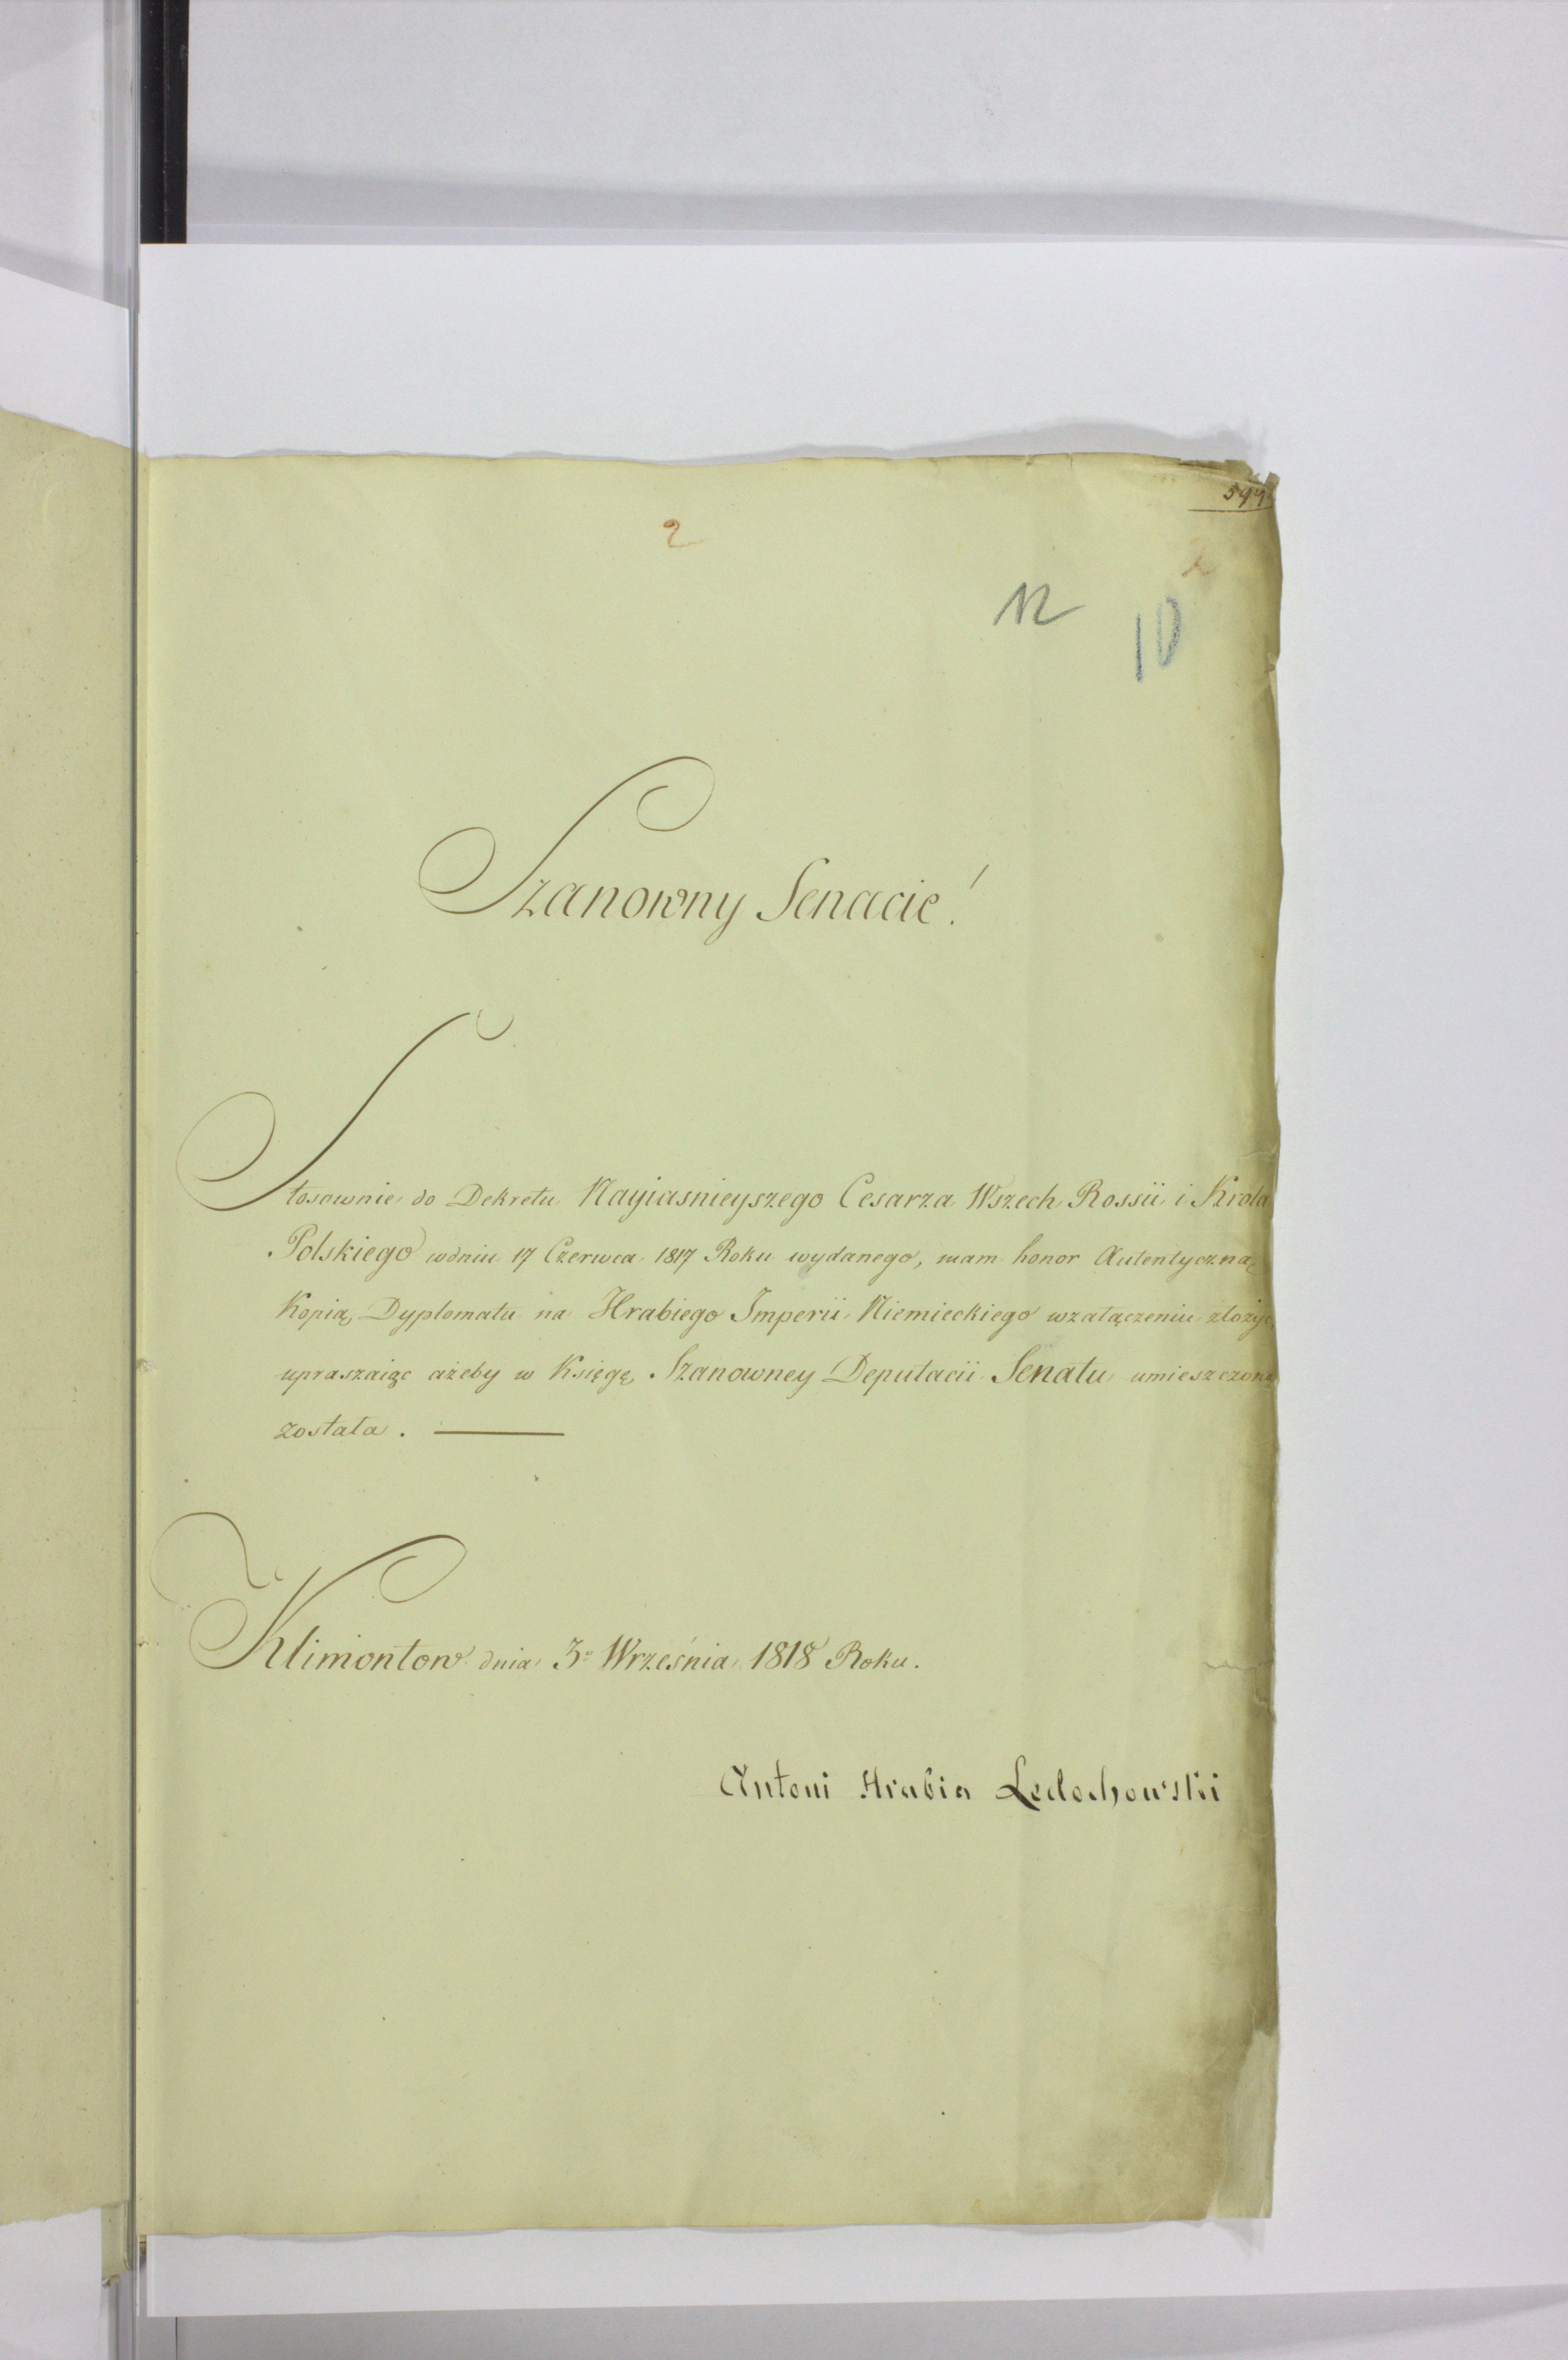 2
2
12
10
Szanowny Senacie!
Stosownie do Dekretu Nayiasnieyszego Cesarza Wszech Rossii i Krola
Polskiego wdniu 17 Czerwca 1817 Roku wydanego, mam honor Autentyczną
Kopią Dyplomatu na Hrabiego Imperii Niemieckiego wzałączeniu złożyć,
upraszaiąc ażeby w Księgę Szanowney Deputacii Senatu umieszczona
została.
Klimontow dnia 3º Września 1818 Roku.
Antoni Hrabia Ledochowski